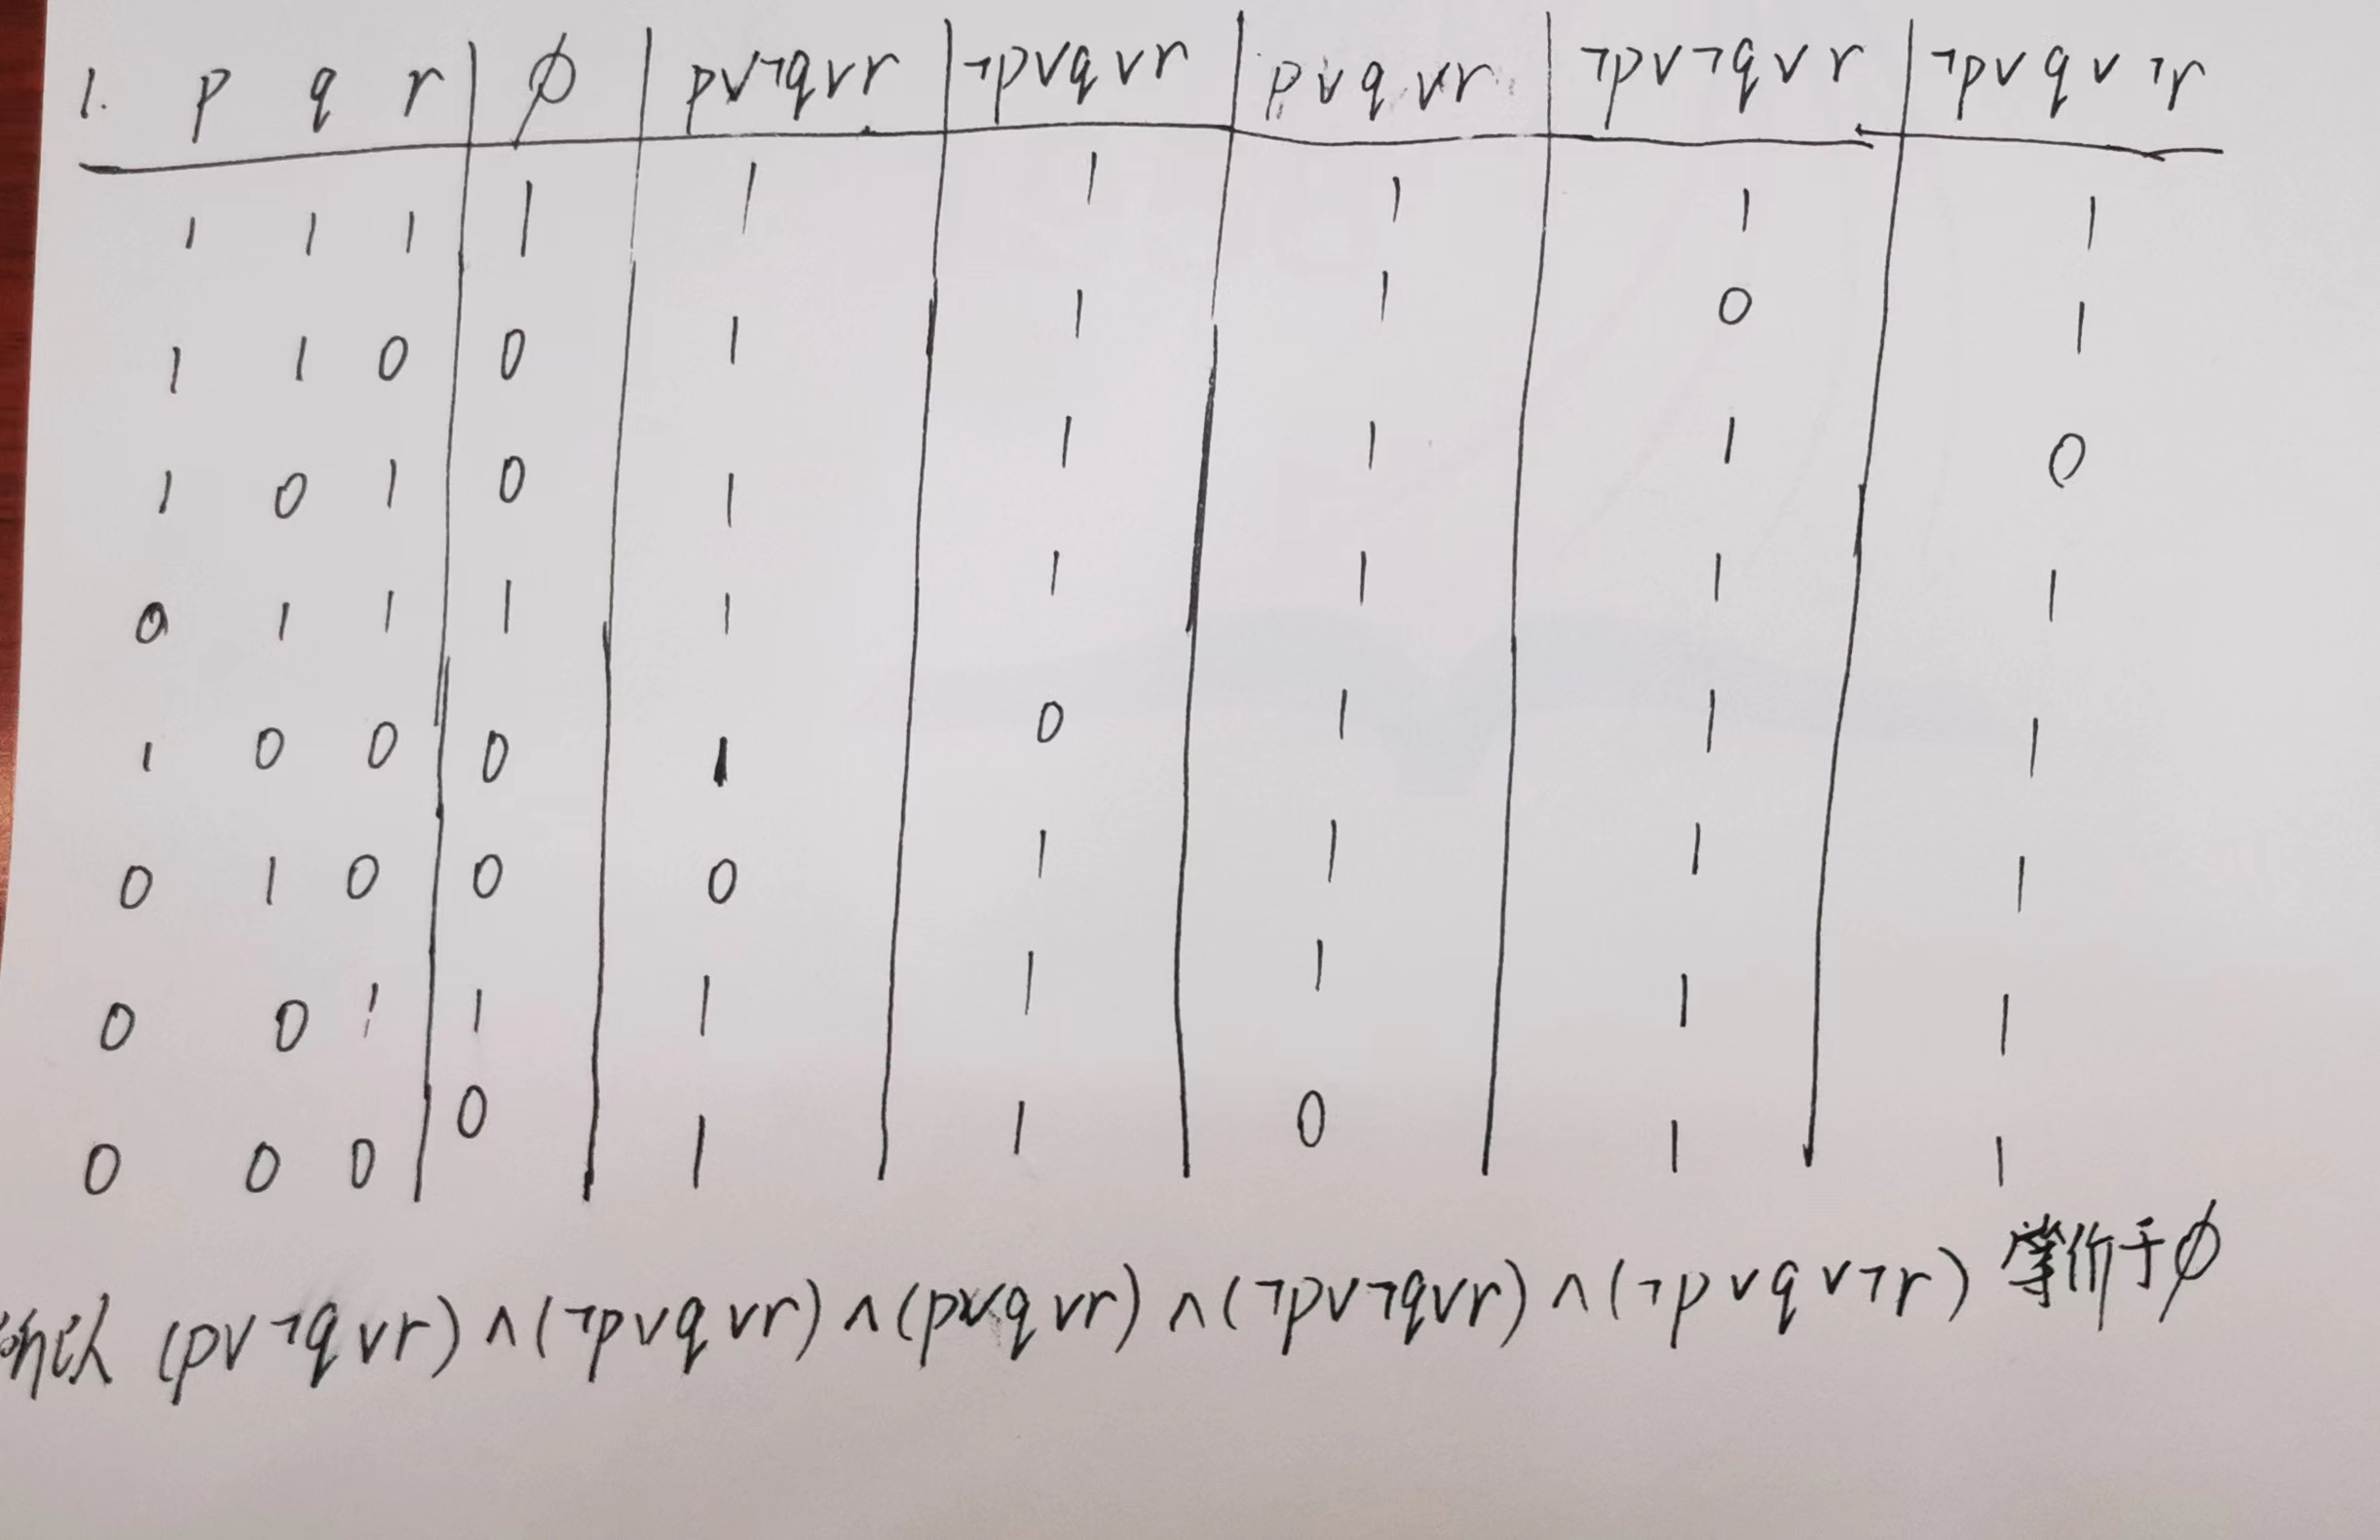 1. p q r φ p∨¬q∨r ¬p∨q∨r p∨q∨r ¬p∨¬q∨r ¬p∨q∨¬r
1 1 1 1 1 1 1 1 1
1 1 0 0 1 1 1 0 1
1 0 1 0 1 1 1 1 0
0 1 1 1 1 1 1 1 1
1 0 0 0 1 0 1 1 1
0 1 0 0 0 1 1 1 1
0 0 1 1 1 1 1 1 1
0 0 0 0 1 1 0 1 1
所以 (p∨¬q∨r)∧(¬p∨q∨r)∧(p∨q∨r)∧(¬p∨¬q∨r)∧(¬p∨q∨¬r) 等价于φ